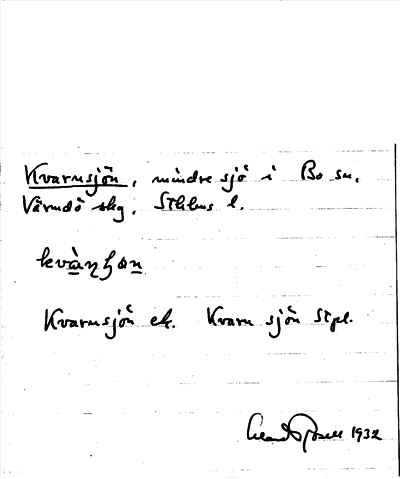 Kvarnsjön, mindre sjö i Bo sn.
Värmdö skg. Sthlms l.
Kvarnsjön ek. Kvarn sjön Stpl.
1932